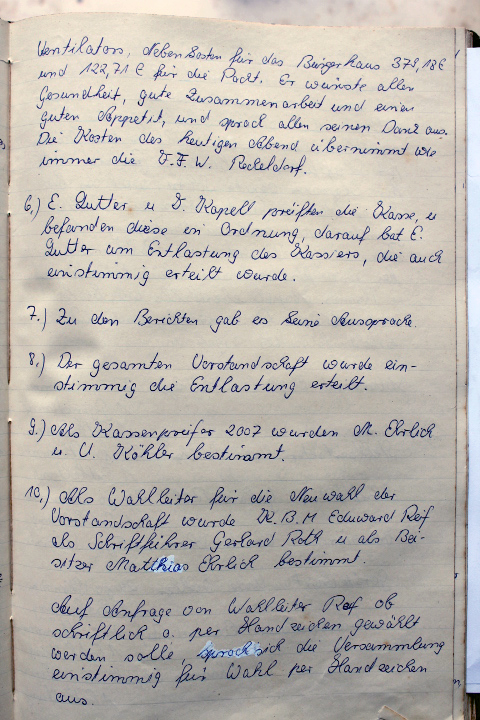 Ventilators, Nebenkosten für das Bürgerhaus 379,18 €
und 122,71 € für die Pacht. Er wünste allen
Gesundheit, gute Zusammenarbeit und einen
guten Appetit, und sprach allen seinen Dank aus.
Die Kosten des heutigen Abend übernimmt wie
immer die F.F.W. Reckeldorf.
6.) E. Gutter u. D. Kapell prüften die Kasse, u
befanden diese in Ordnung, darauf bat E.
Gutter um Entlastung des Kassiers, die auch
einstimmig erteilt wurde.
7.) Zu den Berichten gab es keine Aussprache.
8.) Der gesamten Vorstandschaft wurde ein-
stimmig die Entlastung erteilt.
9.) Als Kassenprüfer 2007 wurden M. Ehrlich
u. U. Köhler bestimmt.
10.) Als Wahlleiter für die Neuwahl der
Vorstandschaft wurde K.B.M Eduward Reif
als Schriftführer Gerhard Roth u als Bei-
sitzer Matthias Ehrlich bestimmt.
Auf Anfrage von Wahlleiter Reif ob
schriftlich o. per Handzeichen gewählt
werden solle, sprach sich die Versammlung
einstimmig für Wahl per Handzeichen
aus.